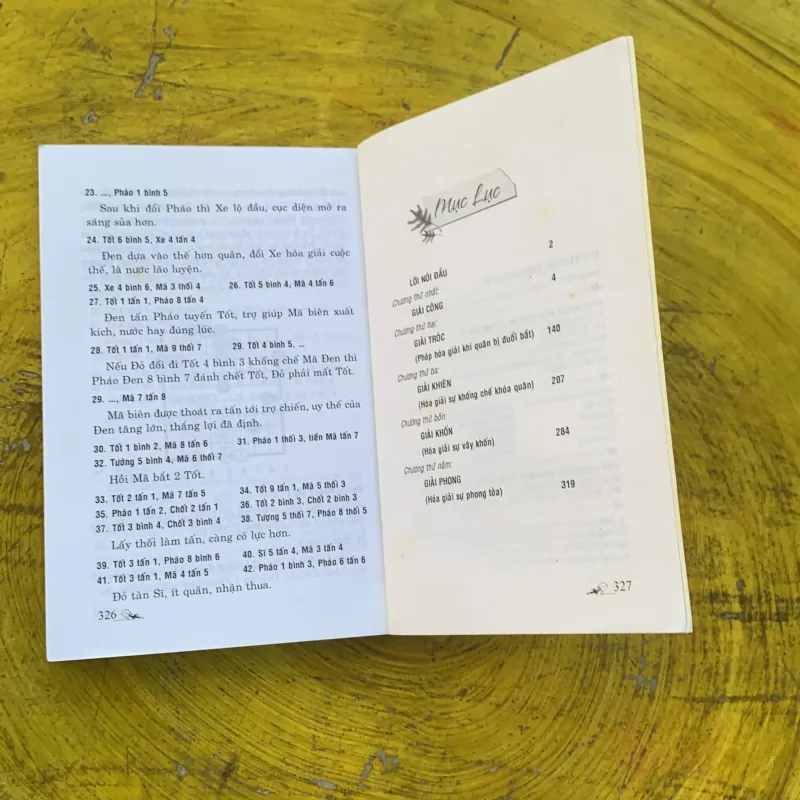 23. ..., Pháo 1 bình 5
Sau khi đổi Pháo thì Xe lộ đầu, cục diện mở ra
sáng sủa hơn.
24. Tốt 6 bình 5, Xe 4 tấn 4
Đen dựa vào thế hơn quân, đổi Xe hóa giải cuộc
thế, là nước lão luyện.
25. Xe 4 bình 6, Mã 3 thối 4 26. Tốt 5 bình 4, Mã 4 tấn 6
27. Tốt 1 tấn 1, Pháo 8 tấn 4
Đen tấn Pháo tuyến Tốt, trợ giúp Mã biên xuất
kích, nước hay đúng lúc.
28. Tốt 1 tấn 1, Mã 9 thối 7 29. Tốt 4 bình 5, ...
Nếu Đỏ đổi đi Tốt 4 bình 3 khống chế Mã Đen thì
Pháo Đen 8 bình 7 đánh chết Tốt, Đỏ phải mất Tốt.
29. ..., Mã 7 tấn 8
Mã biên được thoát ra tấn tới trợ chiến, uy thế của
Đen tăng lớn, thắng lợi đã định.
30. Tốt 1 bình 2, Mã 8 tấn 6 31. Pháo 1 thối 3, tiền Mã tấn 7
32. Tướng 5 bình 4, Mã 6 thối 7
Hồi Mã bắt 2 Tốt.
33. Tốt 2 tấn 1, Mã 7 tấn 5 34. Tốt 9 tấn 1, Mã 5 thối 3
35. Pháo 1 tấn 2, Chốt 2 tấn 1 36. Tốt 2 bình 3, Chốt 2 bình 3
37. Tốt 3 bình 4, Chốt 3 bình 4 38. Tượng 5 thối 7, Pháo 8 thối 5
Lấy thối làm tấn, càng có lực hơn.
39. Tốt 3 tấn 1, Pháo 8 bình 6 40. Sĩ 5 tấn 4, Mã 3 tấn 4
41. Tốt 3 tấn 1, Mã 4 tấn 5 42. Pháo 1 bình 3, Pháo 6 tấn 6
Đỏ tàn Sĩ, ít quân, nhận thua.
326
Mục Lục
LỜI NÓI ĐẦU 2
Chương thứ nhất:
GIẢI CÔNG 4
Chương thứ hai:
GIẢI TRÓC
(Phép hóa giải khi quân bị đuổi bắt) 140
Chương thứ ba:
GIẢI KHIÊN
(Hóa giải sự khống chế khóa quân) 207
Chương thứ bốn:
GIẢI KHỐN
(Hóa giải sự vây khốn) 284
Chương thứ năm:
GIẢI PHONG
(Hóa giải sự phong tỏa) 319
327